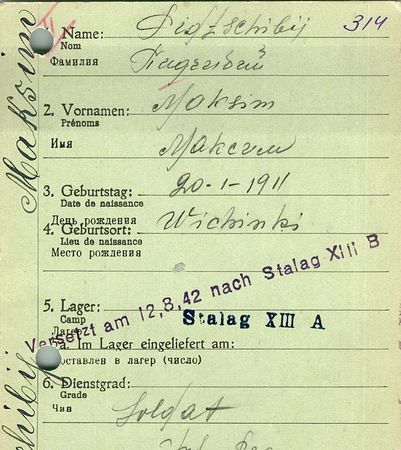 314
1. Name:
Nom
Фамилия
2. Vornamen: Maksim
Prénoms
Имя Максим
3. Geburtstag: 20-1-1911
Date de naissance
День рождения
4. Geburtsort: Wichinki
Lieu de naissance
Место рождения
Versetzt am 12.8.42 nach Stalag XIII B
5. Lager: Stalag XIII A
Camp
a. Im Lager eingeliefert am:
оставлен в лагерь (число)
6. Dienstgrad:
Grade
Чин Soldat
Maksim